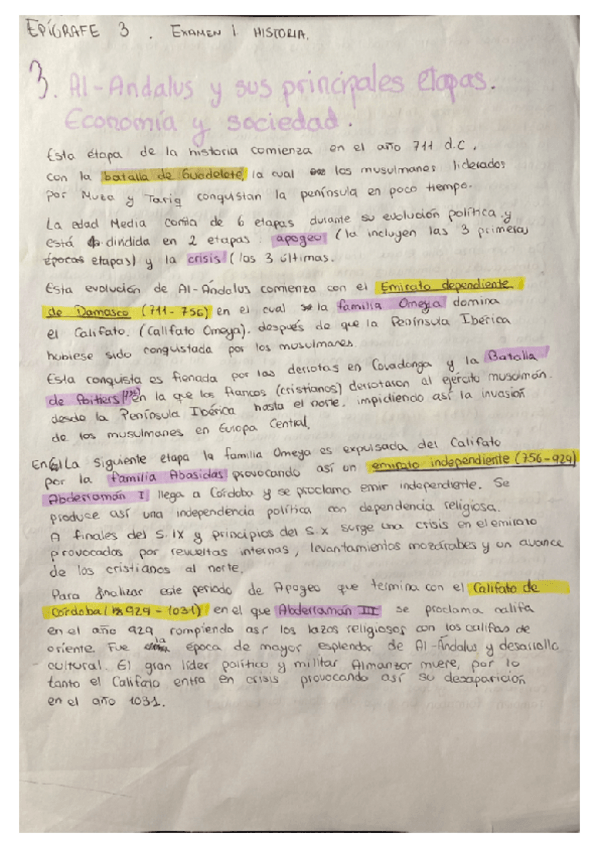 EPÍGRAFE 3. EXAMEN 1 HISTORIA.
3. Al-Andalus y sus principales etapas.
Economía y sociedad.
Esta etapa de la historia comienza en el año 711 d.C,
con la batalla de Guadelete, la cual los musulmanes liderados
por Muza y Tariq conquistan la península en poco tiempo.
La edad Media consta de 6 etapas durante su evolución política y
está dividida en 2 etapas apogeo (la incluyen las 3 primeras
épocas etapas) y la crisis (las 3 últimas.
Esta evolución de Al-Andalus comienza con el Emirato dependiente
de Damasco (711-756) en el cual la familia Omeya domina
el Califato. (Califato Omeya). después de que la Península Ibérica
hubiese sido conquistada por los musulmanes.
Esta conquista es frenada por las derrotas en Covadonga y la Batalla
de Poitiers en la que los francos (cristianos) derrotaron al ejército musulmán.
desde la Península Ibérica hasta el norte. impidiendo así la invasión
de los musulmanes en Europa Central.
En la siguiente etapa la familia Omeya es expulsada del Califato
por la familia Abasidas provocando así un emirato independiente (756-929)
Abderraman I llega a Córdoba y se proclama emir independiente. Se
produce así una independencia política con dependencia religiosa.
A finales del S. IX y principios del S. X surge una crisis en el emirato
provocadas por revueltas internas, levantamientos mozárabes y un avance
de los cristianos al norte.
Para finalizar este periodo de Apogeo que termina con el Califato de
Córdoba (929-1031) en el que Abderraman III se proclama califa
en el año 929 rompiendo así los lazos religiosos con los califas de
oriente. Fue la época de mayor esplendor de Al-Andalus y desarrollo
cultural. El gran líder político y militar Almanzor muere, por lo
tanto el Califato entra en crisis provocando así su desaparición
en el año 1031.